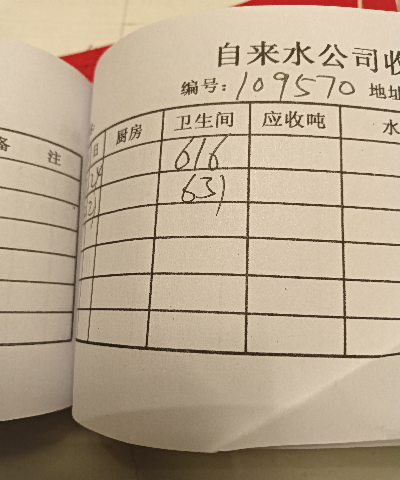 自来水公司收
编号: 109570 地址
备 注
日 厨房 卫生间 应收吨 水
616
631